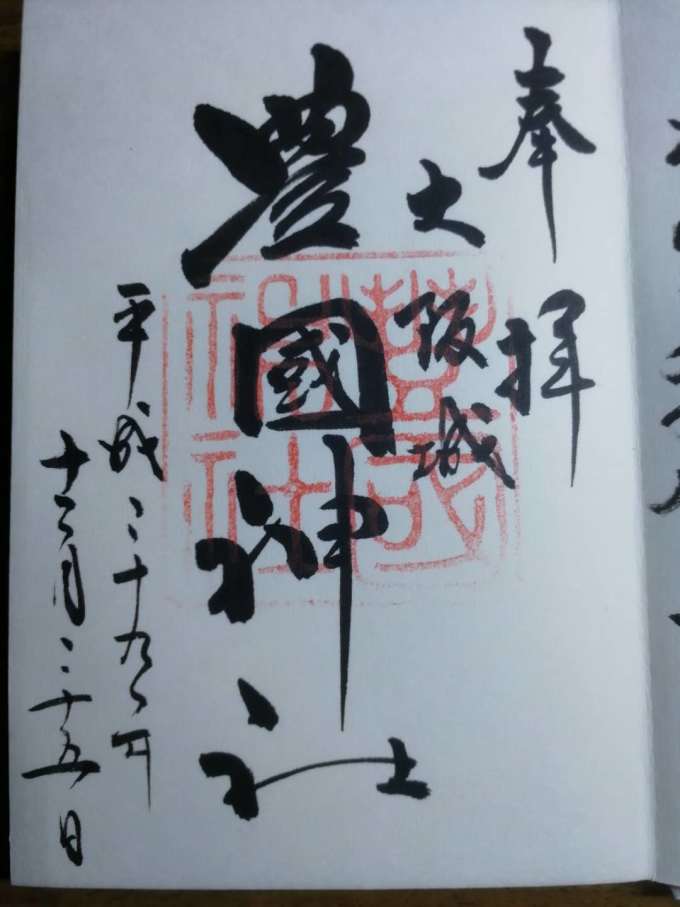 奉拝
大阪城
豊國神社
平成二十九年
十二月二十五日